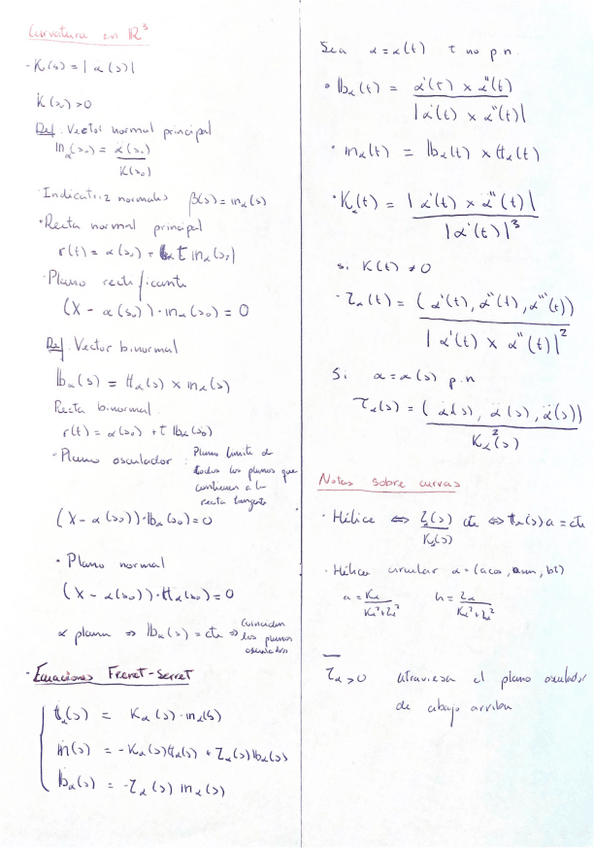 Curvatura en ℝ³
- K(s) = | α̈(s) |
K(s₀) > 0
Def. Vector normal principal
𝕟α(s₀) = α̈(s₀) / K(s₀)
· Indicatriz normales β(s) = 𝕟α(s)
· Recta normal principal
r(t) = α(s₀) + t 𝕟α(s₀)
· Plano rectificante
(X - α(s₀)) · 𝕟α(s₀) = 0
Def. Vector binormal
𝕓α(s) = 𝕥α(s) × 𝕟α(s)
Recta binormal
r(t) = α(s₀) + t 𝕓α(s₀)
· Plano osculador : Plano límite de
todos los planos que
contienen a la
recta tangente
(X - α(s₀)) · 𝕓α(s₀) = 0
· Plano normal
(X - α(s₀)) · 𝕥α(s₀) = 0
α plana ⇒ 𝕓α(s) = cte ⇒ Coinciden
los planos
osculadores
· Ecuaciones Frenet-Serret
𝕥̇α(s) = Kα(s) · 𝕟α(s)
𝕟̇(s) = - Kα(s) 𝕥α(s) + τα(s) 𝕓α(s)
𝕓̇α(s) = - τα(s) 𝕟α(s)
Sea α = α(t) t no p.n.
· 𝕓α(t) = α'(t) × α''(t) / |α'(t) × α''(t)|
· 𝕟α(t) = 𝕓α(t) × 𝕥α(t)
· Kα(t) = |α'(t) × α''(t)| / |α'(t)|³
si K(t) ≠ 0
· τα(t) = (α'(t), α''(t), α'''(t)) / |α'(t) × α''(t)|²
Si α = α(s) p.n
τα(s) = (α̇(s), α̈(s), α⃛(s)) / Kα²(s)
Notas sobre curvas
· Hélice ⇔ τα(s) / Kα(s) cte ⇔ 𝕥α(s) a = cte
· Hélice circular α = (a cos, a sen, bt)
a = Kα / Kα² + τα² b = τα / Kα² + τα²
τα > 0 atraviesa el plano osculador
de abajo arriba